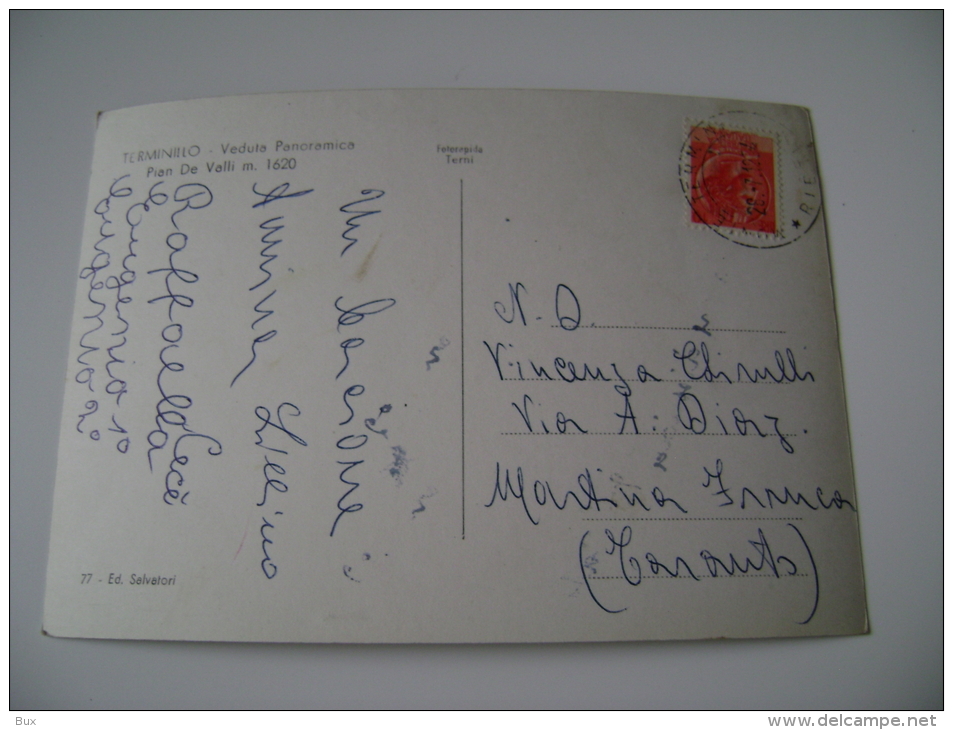 TERMINILLO - Veduta Panoramica
Pian De Valli m. 1620
Fotorapida
Terni
Un bacione
Annina Lillino
Raffaella Cecè
Eugenio 1°
Eugenio 2°
77 - Ed. Salvatori
RIE
N. D.
Vincenza Chirulli
Via A. Diaz.
Martina Franca
(Taranto)
Bux
www.delcampe.net